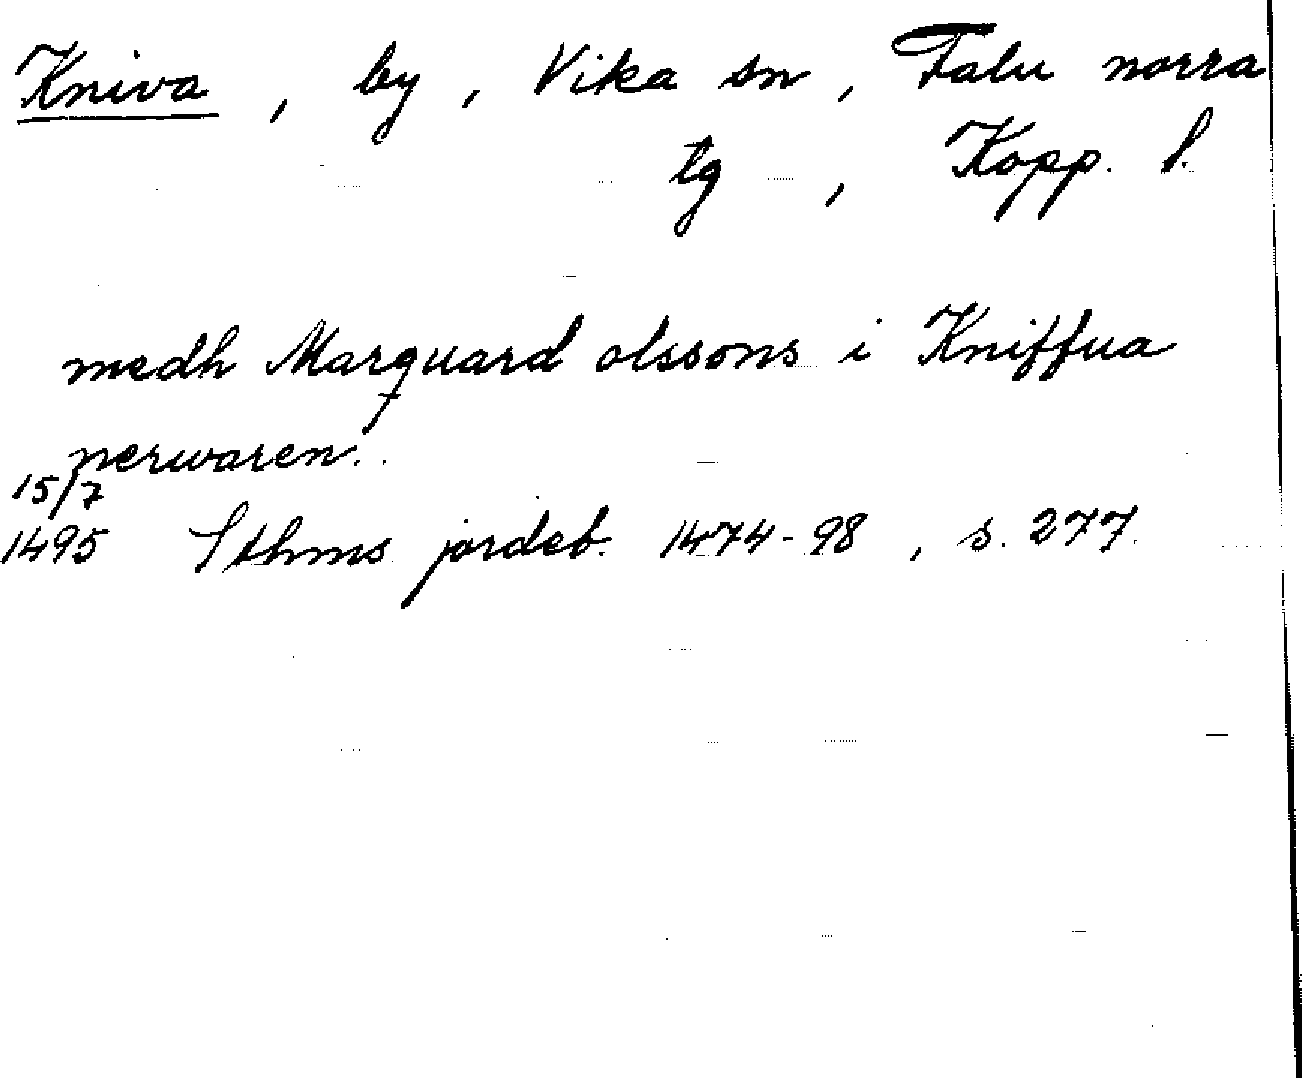 Kniva, by, Vika sn, Falu norra
tg, Kopp. l.
medh Marquard olssons i Kniffua
nerwaren.
15/7
1495 Sthms jordeb. 1474-98, s. 277.